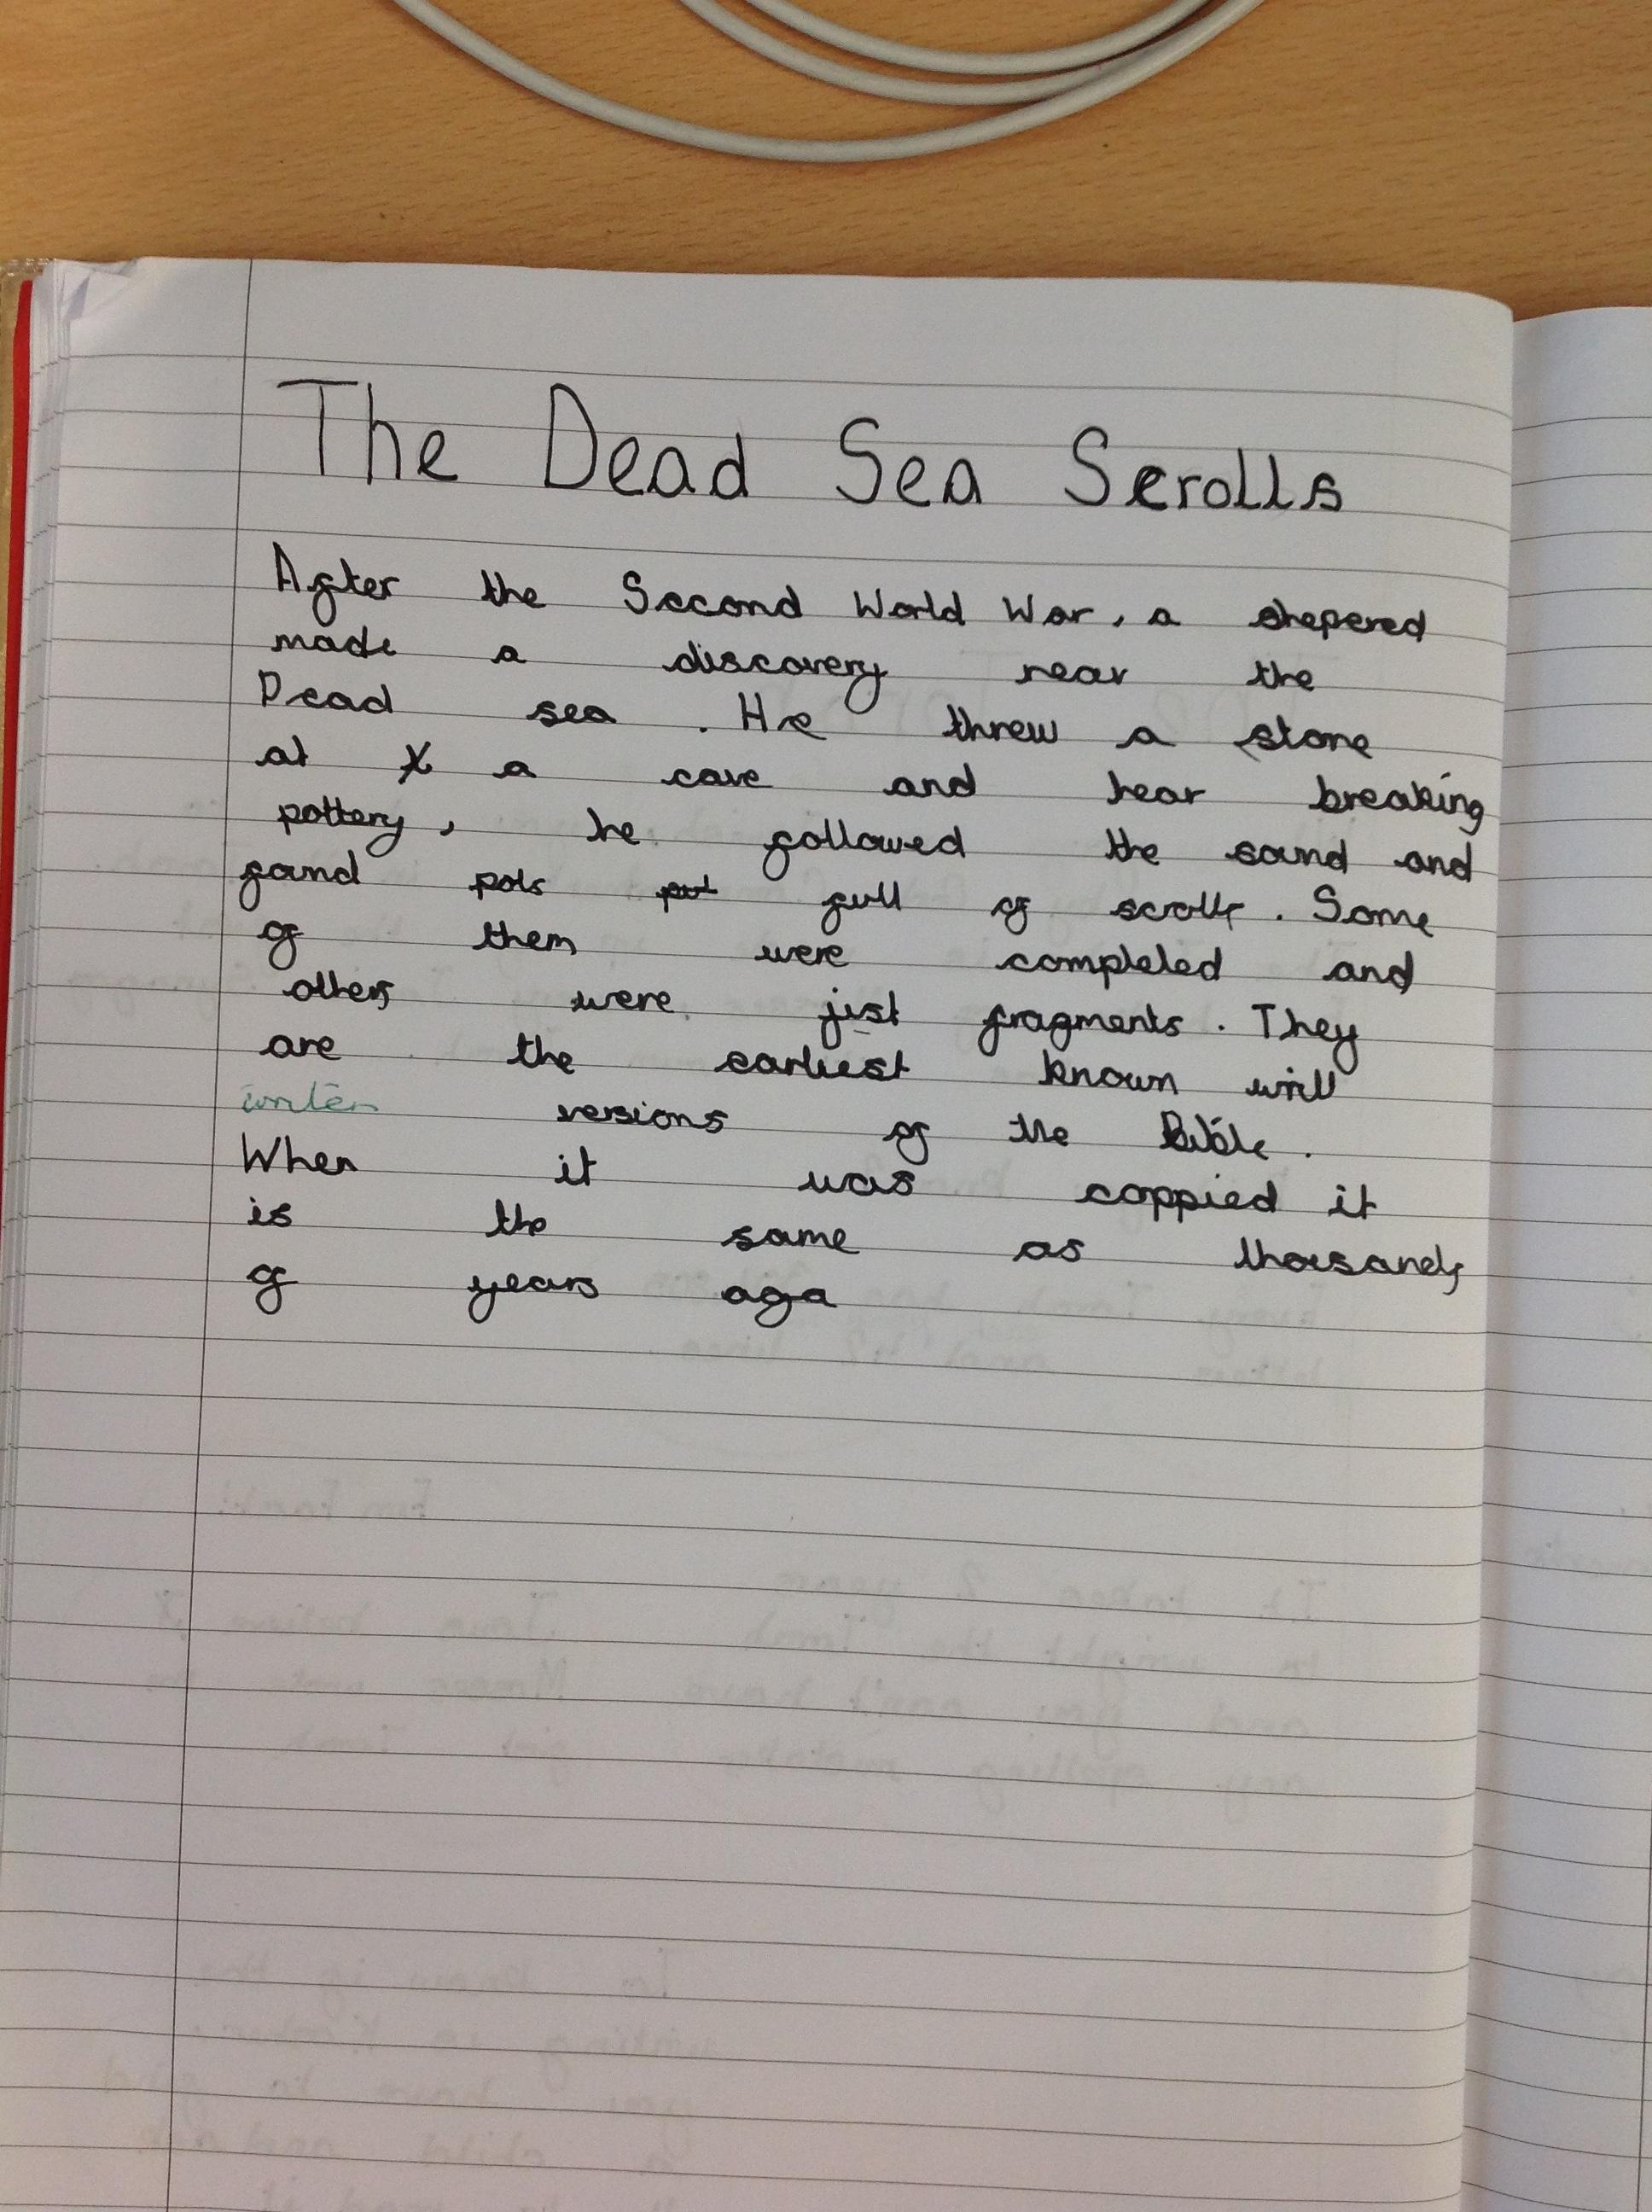 The Dead Sea Scrolls
After the Second World War, a shepered
made a discovery near the
Dead sea. He threw a stone
at a cave and hear breaking
pottery, he followed the sound and
found pots put full of scrolls. Some
of them were completed and
others were just fragments. They
are the earliest known writ
writen versions of the Bible.
When it was coppied it
is the same as thousands
of years aga